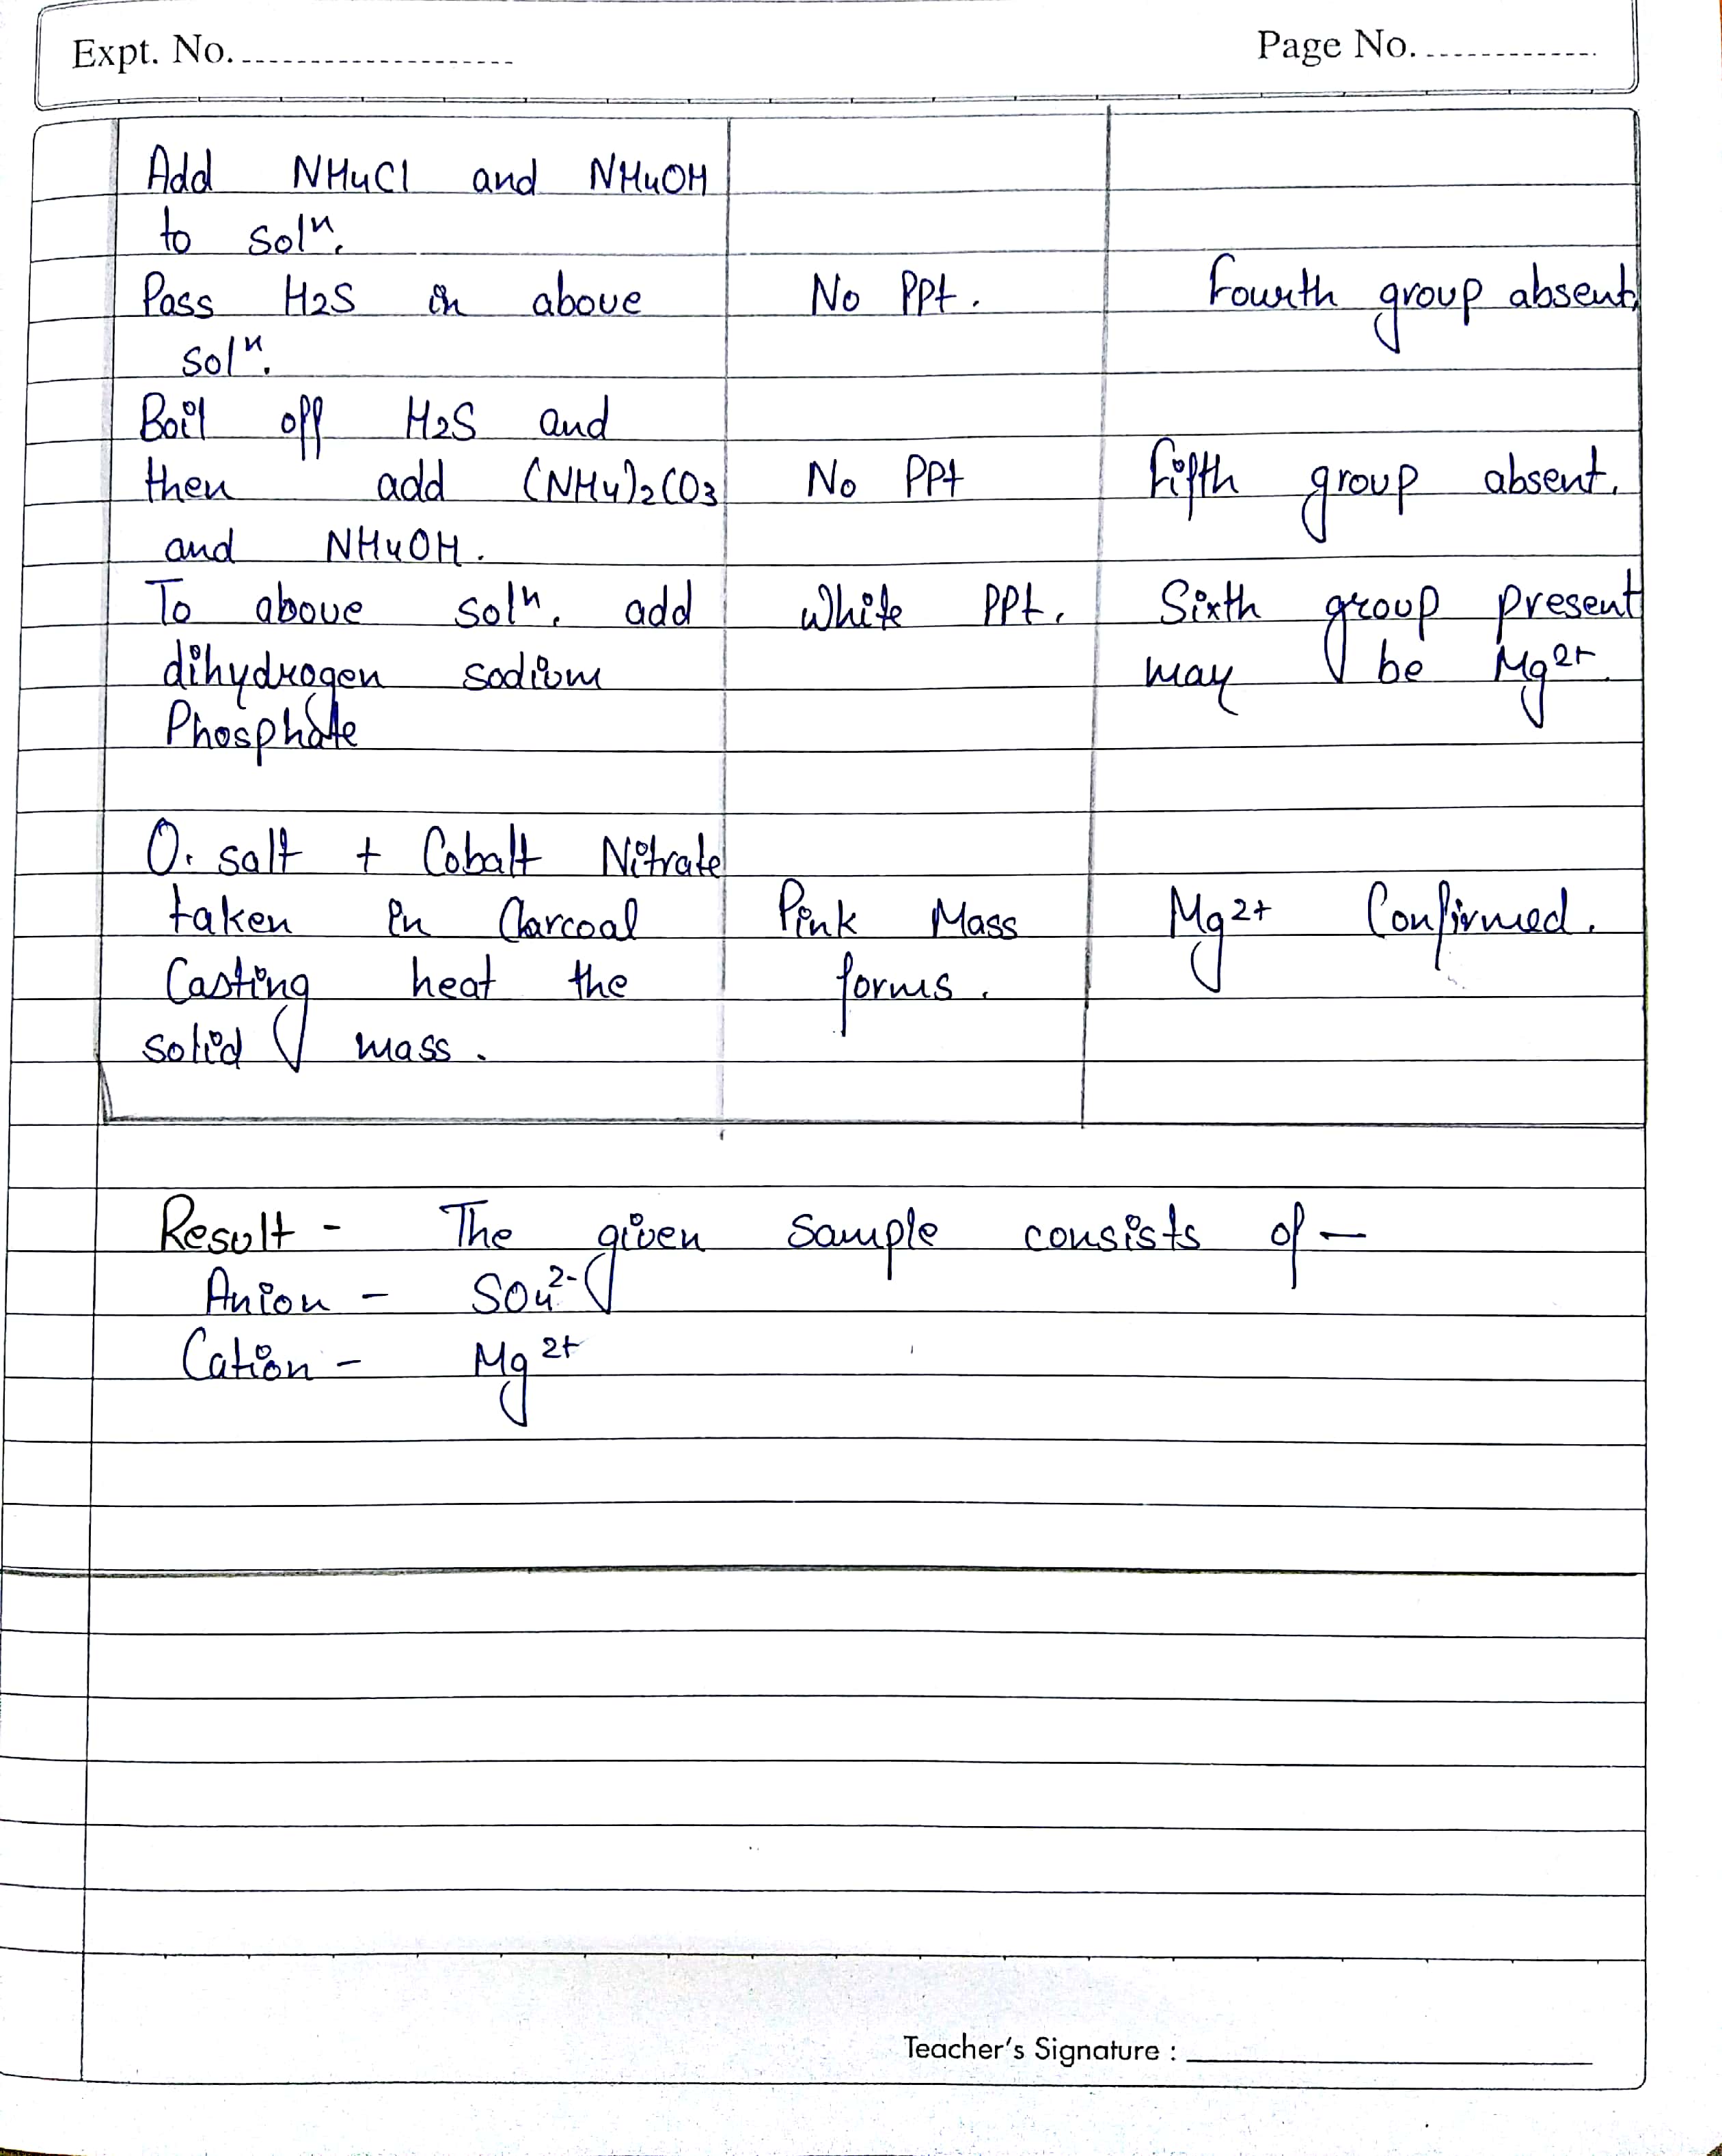 Expt. No. Page No.
Add NH4Cl and NH4OH
to solⁿ.
Pass H2S in above No PPt. Fourth group absent.
solⁿ.
Boil off H2S and
then add (NH4)2CO3 No PPt Fifth group absent.
and NH4OH.
To above solⁿ. add White PPt. Sixth group present
dihydrogen sodium may be Mg2+.
Phosphate
O. salt + Cobalt Nitrate
taken in Charcoal Pink Mass Mg2+ Confirmed.
Casting heat the forms.
solid mass.
Result - The given sample consists of —
Anion - SO4²⁻
Cation - Mg²⁺
Teacher's Signature :